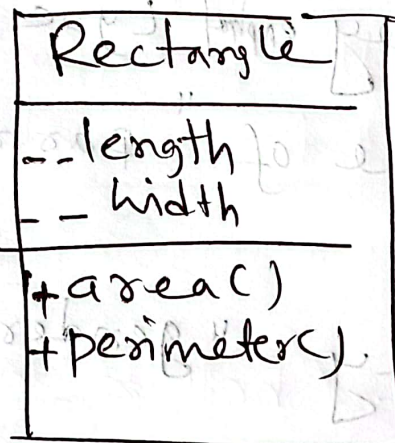 Rectangle
--length
-- width
+area()
+perimeter().